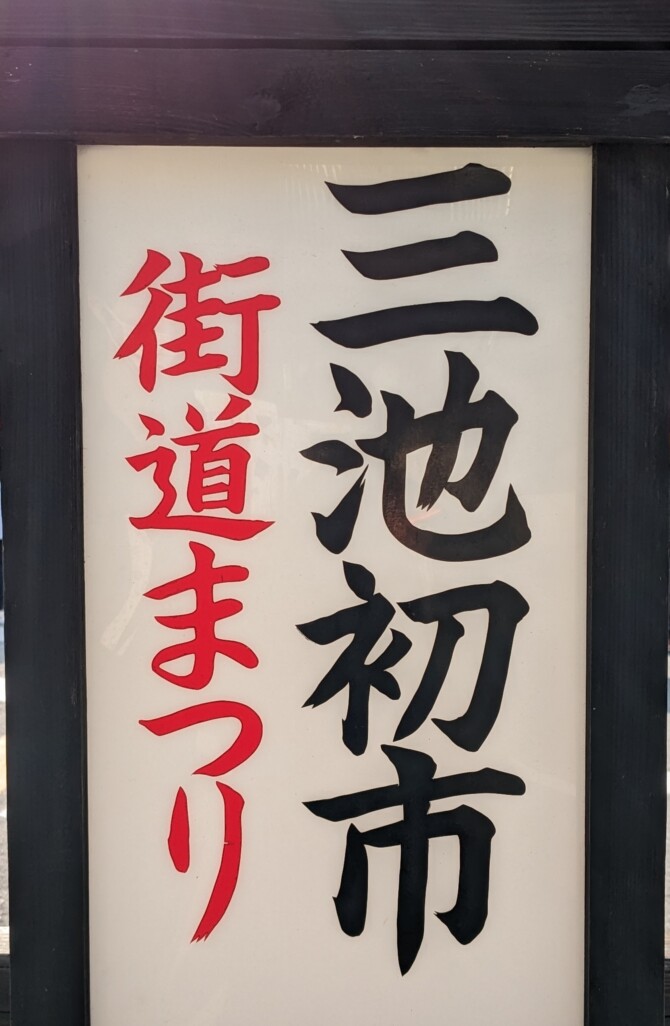 三池初市
街道まつり